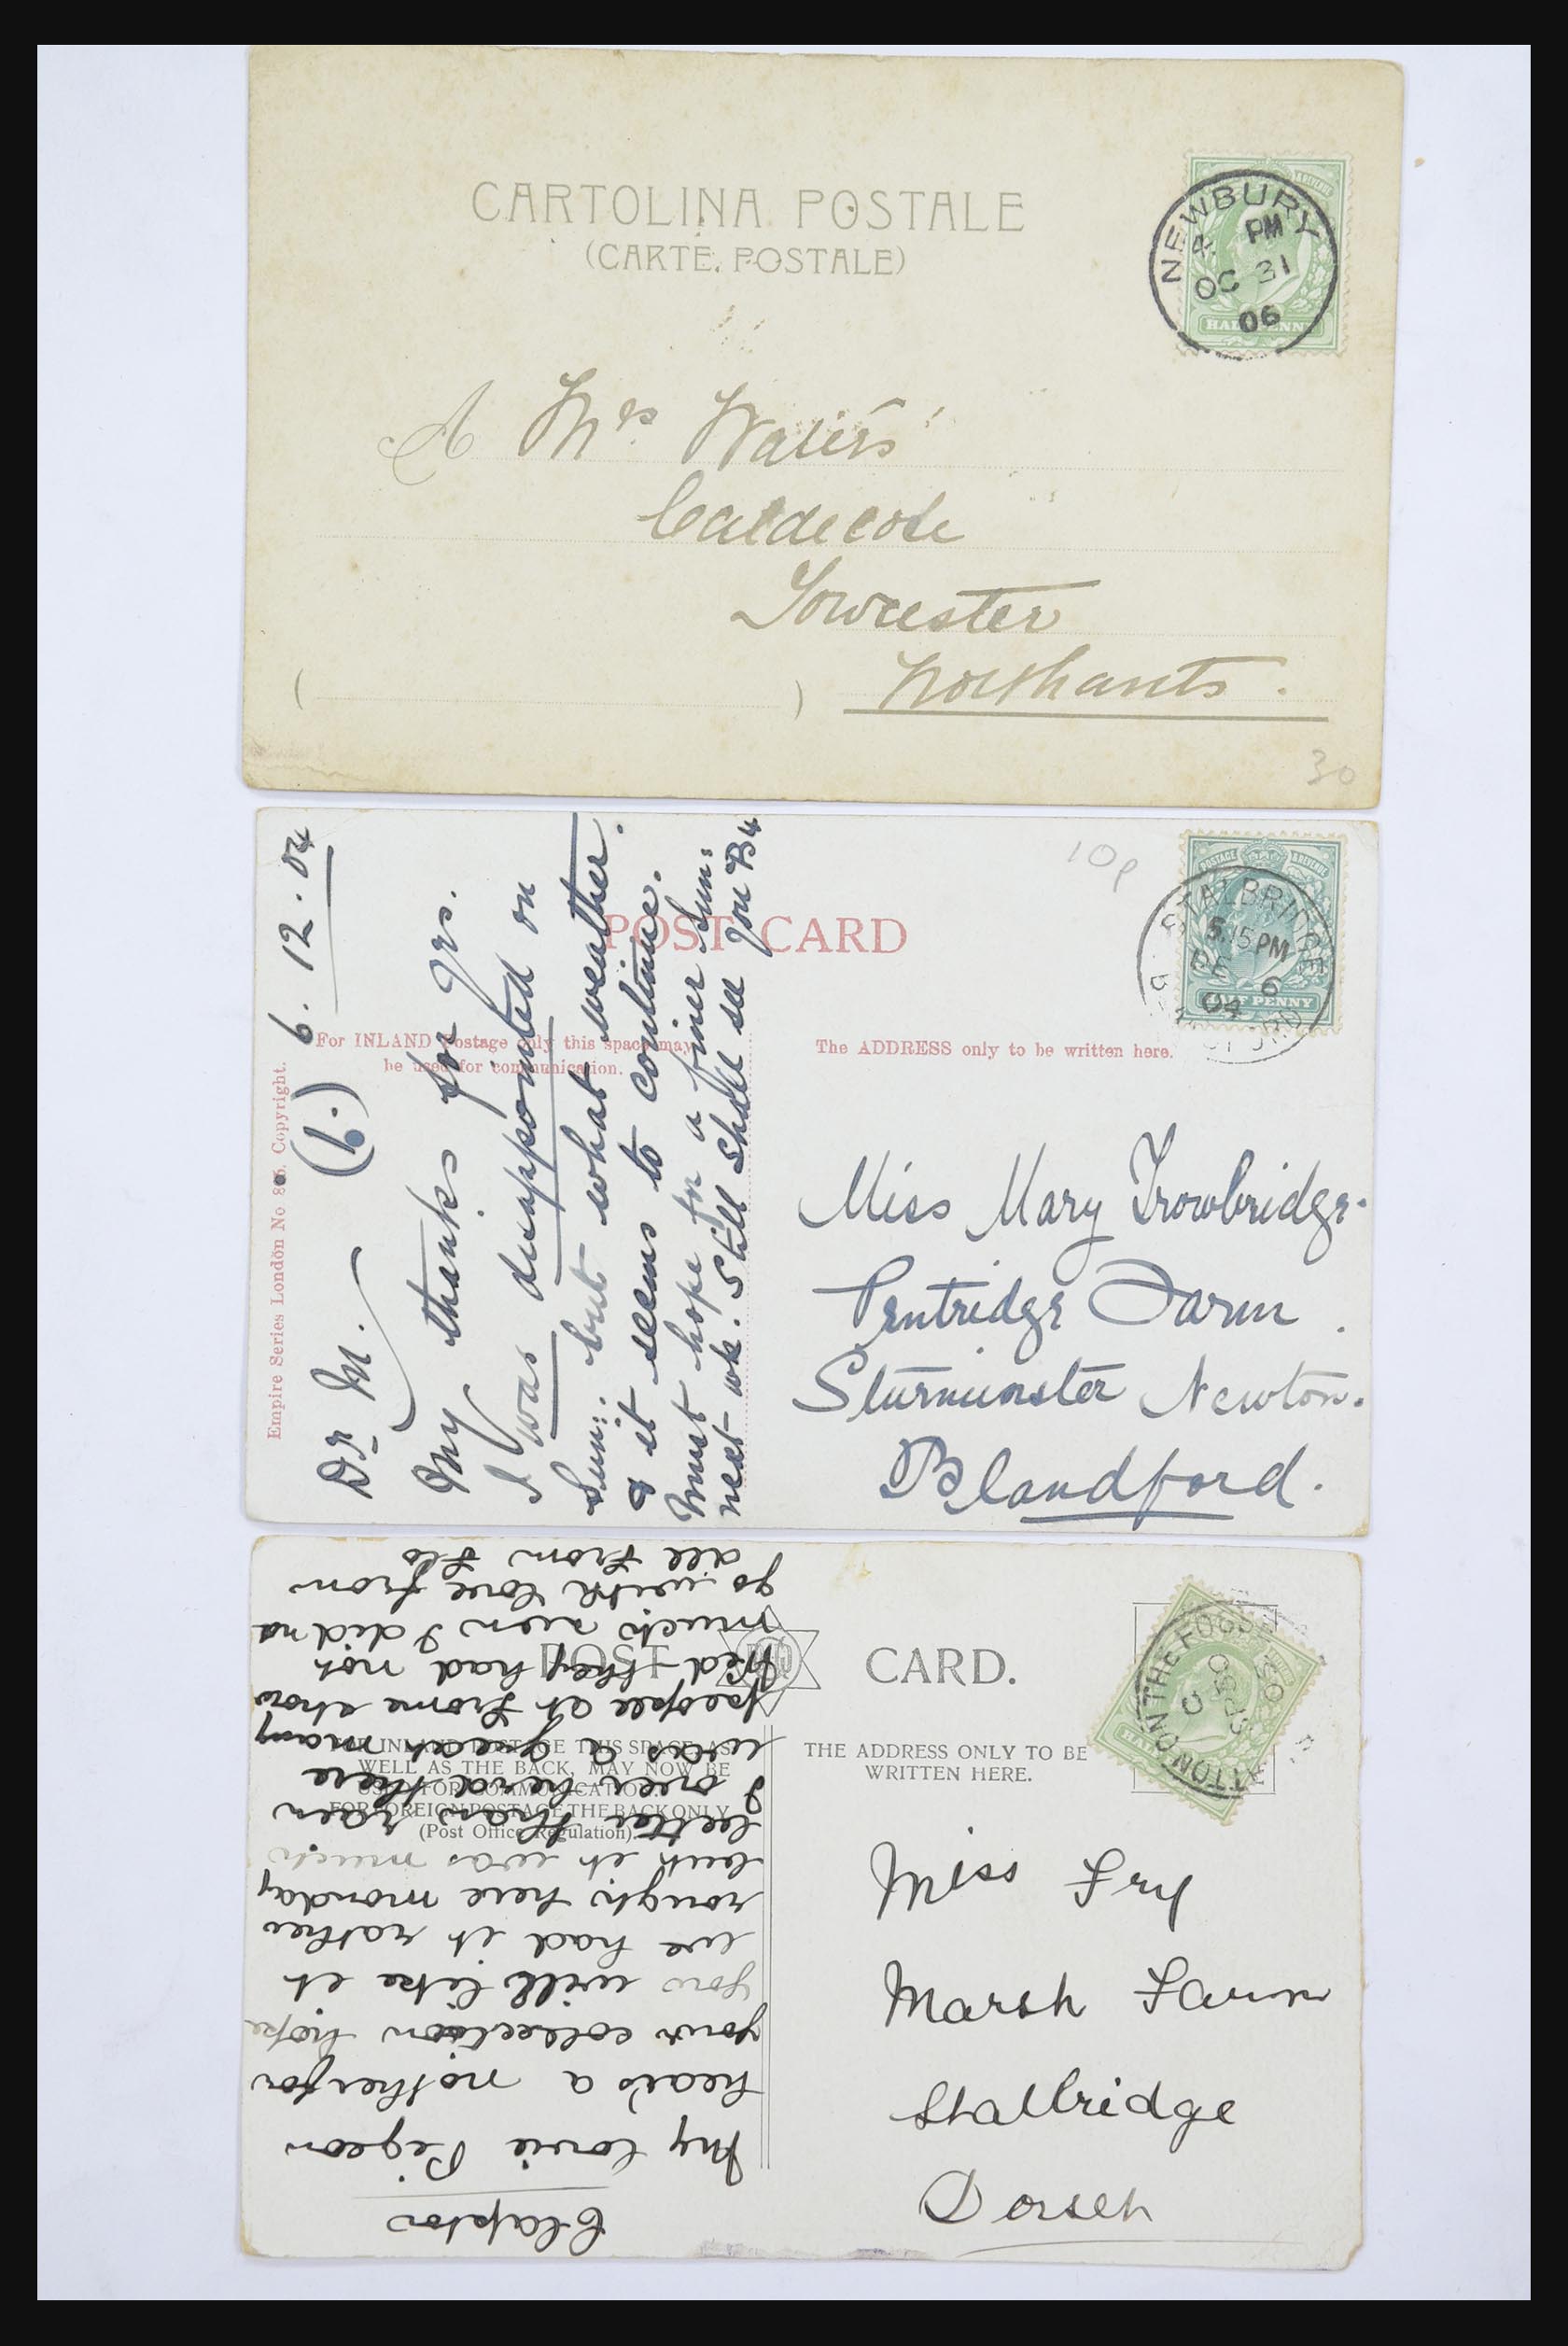 CARTOLINA POSTALE
(CARTE POSTALE)
NEWBURY
4 PM
OC 31
06
HALFPENNY
A Mrs Waters
Caldecote
Towcester
Northants.
30
POST CARD
10p
POSTAGE & REVENUE
STALBRIDGE
5.15 PM
DE 6
04
HALFPENNY
For INLAND Postage only this space may
be used for communication.
The ADDRESS only to be written here.
Empire Series London No 8 Copyright.
Dr M. (1.) 6.12.04
My thanks for yrs.
I was disappointed on
Sun: but what weather.
& it seems to continue.
Must hope for a finer Sun:
next wk. Still shall see you B4
Miss Mary Trowbridge.
Pentridge Farm.
Sturminster Newton.
Blandford.
POST CARD.
FOR INLAND POSTAGE THIS SPACE, AS
WELL AS THE BACK, MAY NOW BE
USED FOR COMMUNICATION.
FOR FOREIGN POSTAGE THE BACK ONLY
(Post Office Regulation).
THE ADDRESS ONLY TO BE
WRITTEN HERE.
TTON ON THE FOSSE
Miss Fry
Marsh Farm
Stalbridge
Dorset
Clapton
My lovie Pigeon
hear's a nother for
your collection hope
you will like it
we had it rather
rough here monday
but it was much
better than
I ever herd there
was a great many
people at Frome
they had not
much I did
go with love from
all from Flo